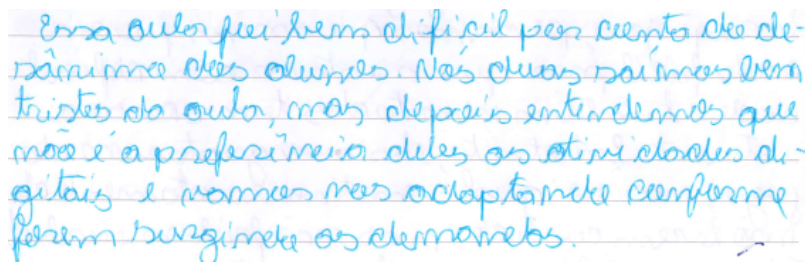 Essa aula foi bem difícil por conta do de-
sânimo dos alunos. Nós duas saímos bem
tristes da aula, mas depois entendemos que
não é a preferência deles as atividades di-
gitais e vamos nos adaptando conforme
forem surgindo as demandas.